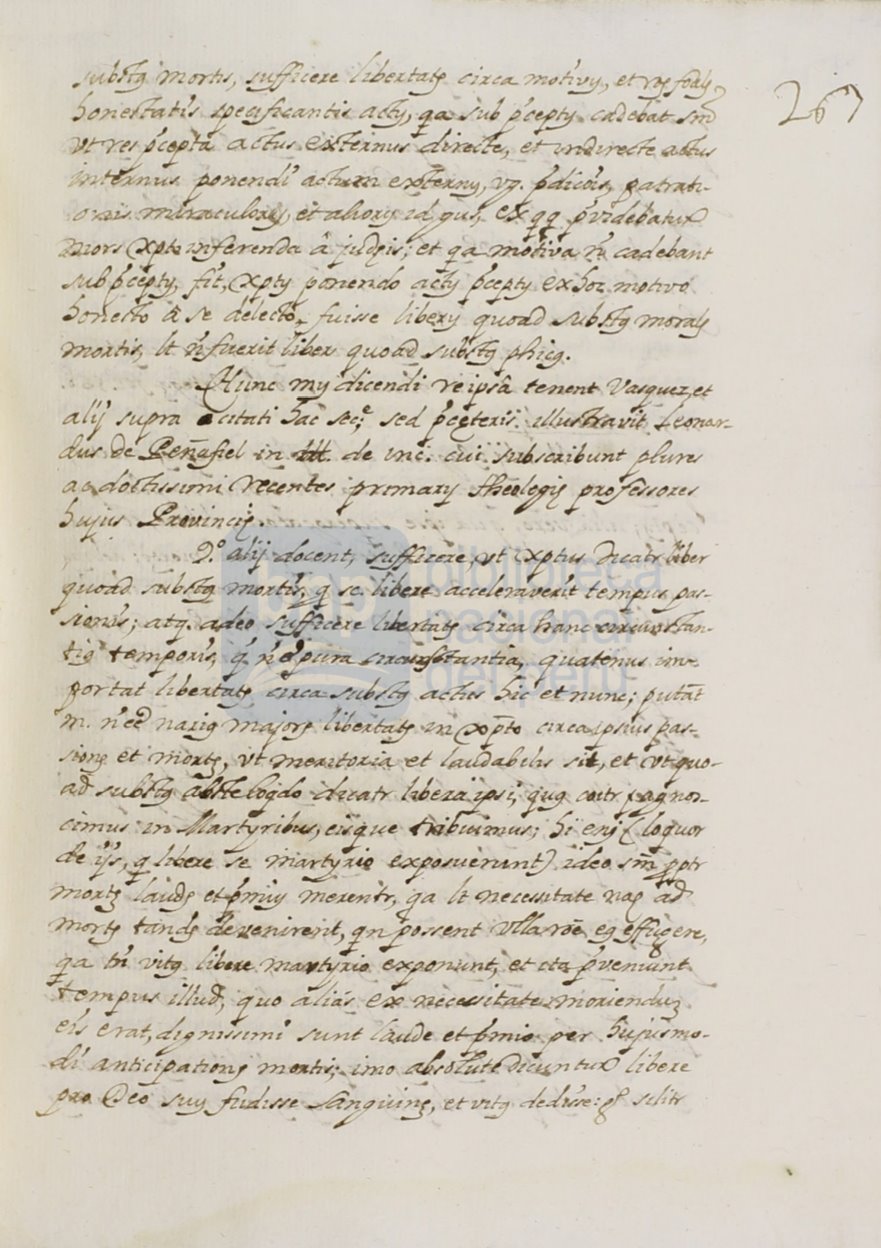 267
substą mortis, sufficere libertatę circa motivų, et
honestatis specificantis actų, qa sub p̃ceptų cadebat sm̃
vt res p̃cepta actus externus directe, et indirecte actus
internus ponendi actum externų, vg. p̃dicõis, patrati-
onis miraculorų, et aliorų id gus, ex qq p̃videbatur
mors Xpto inferenda â judęis; et qa motiva ñ cadebant
sub p̃ceptų, fit, Xptų ponendo actų p̃ceptų ex hoc motivo
honesto a se delecto, fuisse liberų quoad substą moralę
mortis, lt ñ fuerit liber quoad substą phicą.
Hunc mų dicendi reipsâ tenent Vasquez, et
alij supra citati hac sec.e sed p̃ cęteris illustravit Leonar-
dus de Peñafiel in de inc. cui subscribunt plures
ac doctissimi recentes primarij theologię professores
hujus Provincię.
2.o alij docent, sufficere, vt Xptus dicatr liber
quoad substą mortis, q̃ sc. libere acceleraverit tempus pas-
sionis; atq. adeo sufficere libertatę circa hanc circunstan-
tią temporis, q̃ ñ ẽ pura circunstantia, quatenus im-
portat libertatę circa substą actus hic et nunc; putãt
m. ñ eẽ narią majorę libertatę in Xpto circa ipsius pas-
sionę et mortę, vt meritoria et laudabilis sit, et vt quo-
ad substą abste loqdo dicatr libera ipsi, quą coitr agnos-
cimus in Martyribus, eisque tribuimus; hi enį (loquor
de ijs, q̃ libere se martyrio exposuerunt) ideo sm̃ pptr
mortę laudę et p̃mių merentr, qa lt necessitate naę ad
mortę tandę devenirent, qn possent vlla rõe eą effugere,
qa tñ vitą libere martyrio exponunt, et ita p̃veniunt
tempus illud, quo aliás ex necessitate moriendų
eis erat, dignissimi sunt laude et p̃mio per hujusmo-
di anticipationę mortis; imo absolute dicuntur libere
pro Deo suų fudisse sanguinę, et vitą dedisse: